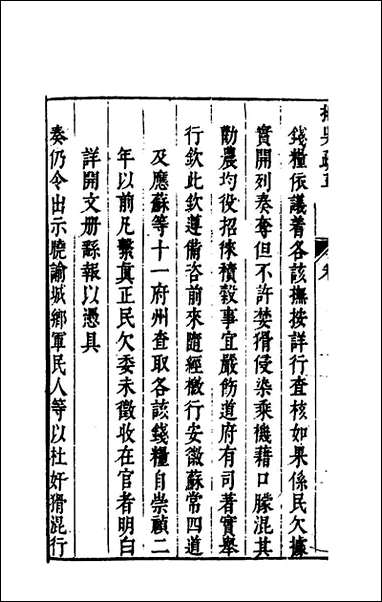 撫吳疏草
卷
錢糧依議着各該撫按詳行查核如果係民欠據
實開列奏奪但不許婪猾侵染乘機藉口朦混其
勸農均役招徠積穀事宜嚴飭道府有司著實舉
行欽此欽遵備咨前來隨經檄行安徽蘇常四道
及應蘇等十一府州查取各該錢糧自崇禎二
年以前凡繫真正民欠委未徵收在官者明白
詳開文册繇報以憑具
奏仍令出示曉諭城鄉軍民人等以杜奸猾混行